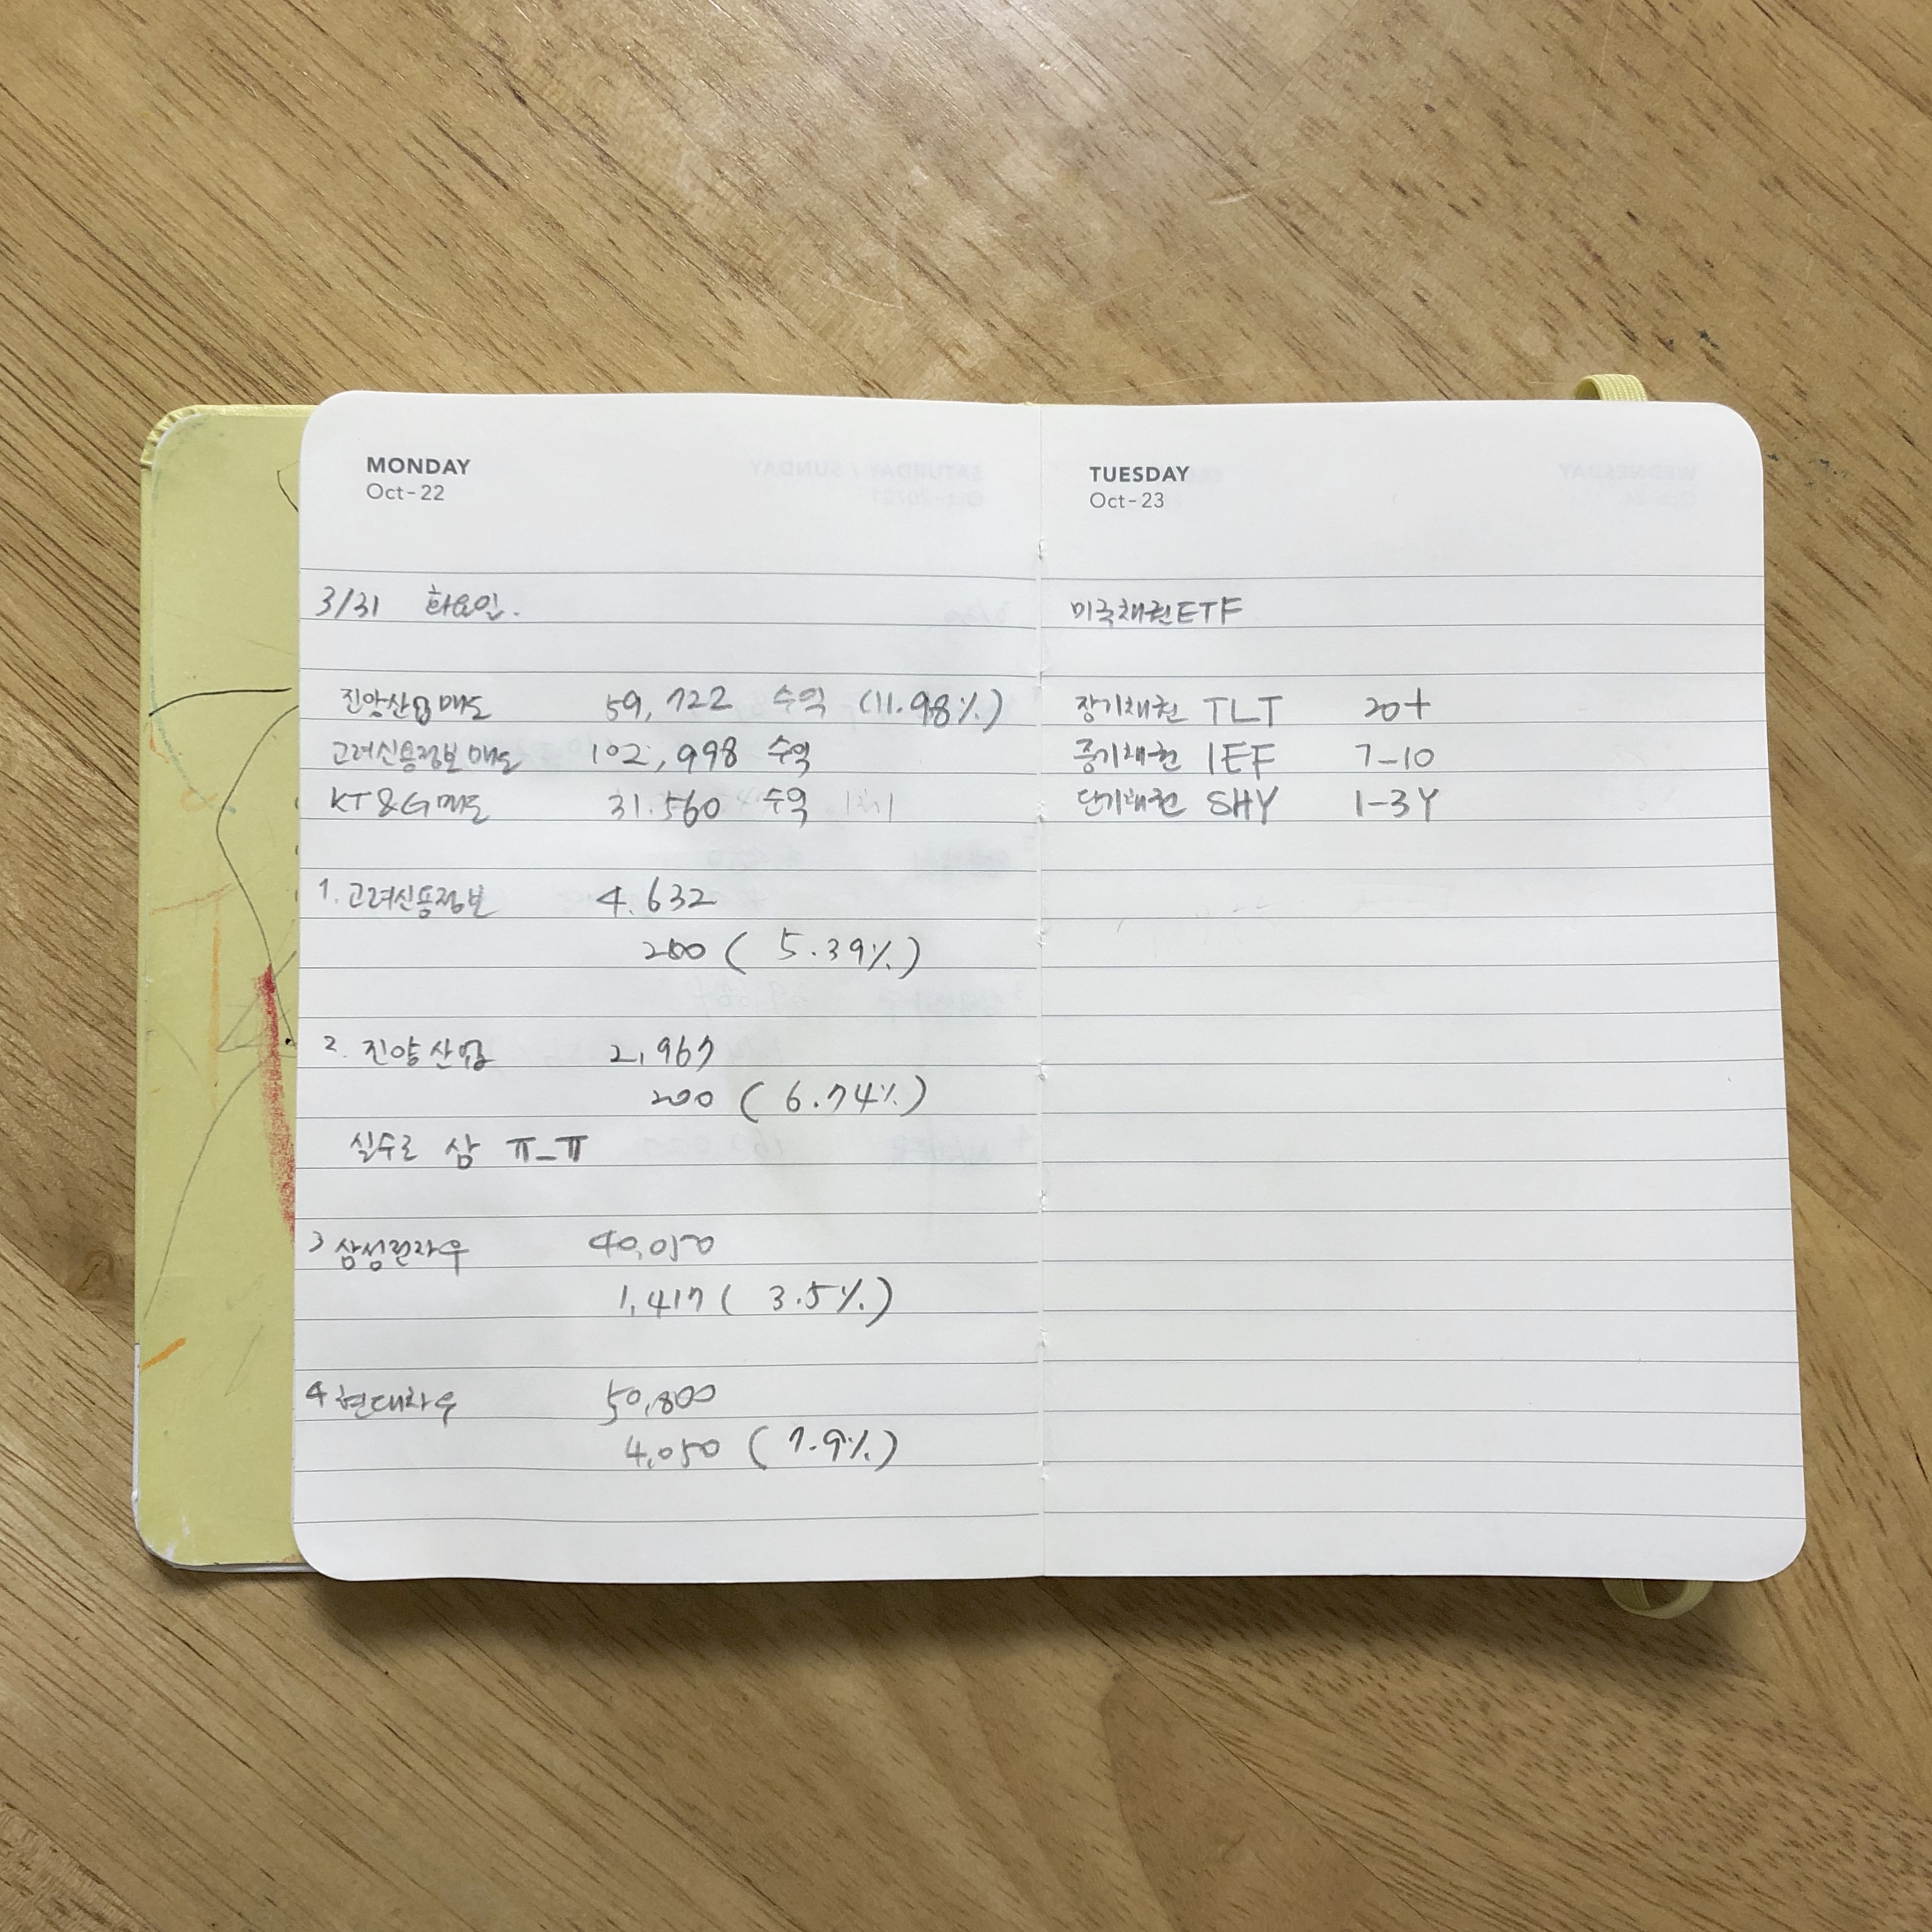 MONDAY
Oct-22
3/31 화요일.
진양산업 매도 59,722 수익 (11.98%)
고려신용정보 매도 102,998 수익
KT&G 매도 31.560 수익
1. 고려신용정보 4.632
200 ( 5.39%)
2. 진양산업 2,967
200 ( 6.74%)
실수로 삼 ㅠ_ㅠ
3 삼성전자우 40,050
1,417 ( 3.5%)
4 현대차우 50,800
4,050 ( 7.9%)
TUESDAY
Oct-23
미국채권ETF
장기채권 TLT 20+
중기채권 IEF 7-10
단기채권 SHY 1-3Y